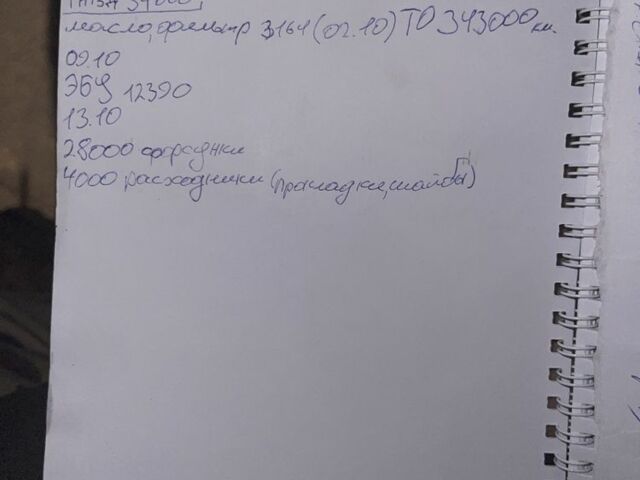 масло, фильтр 3164 (02.10) ТО 343000 км.
09.10
ЭБУ 12390
13.10
28000 форсунки
4000 расходники (прокладки, шайбы)